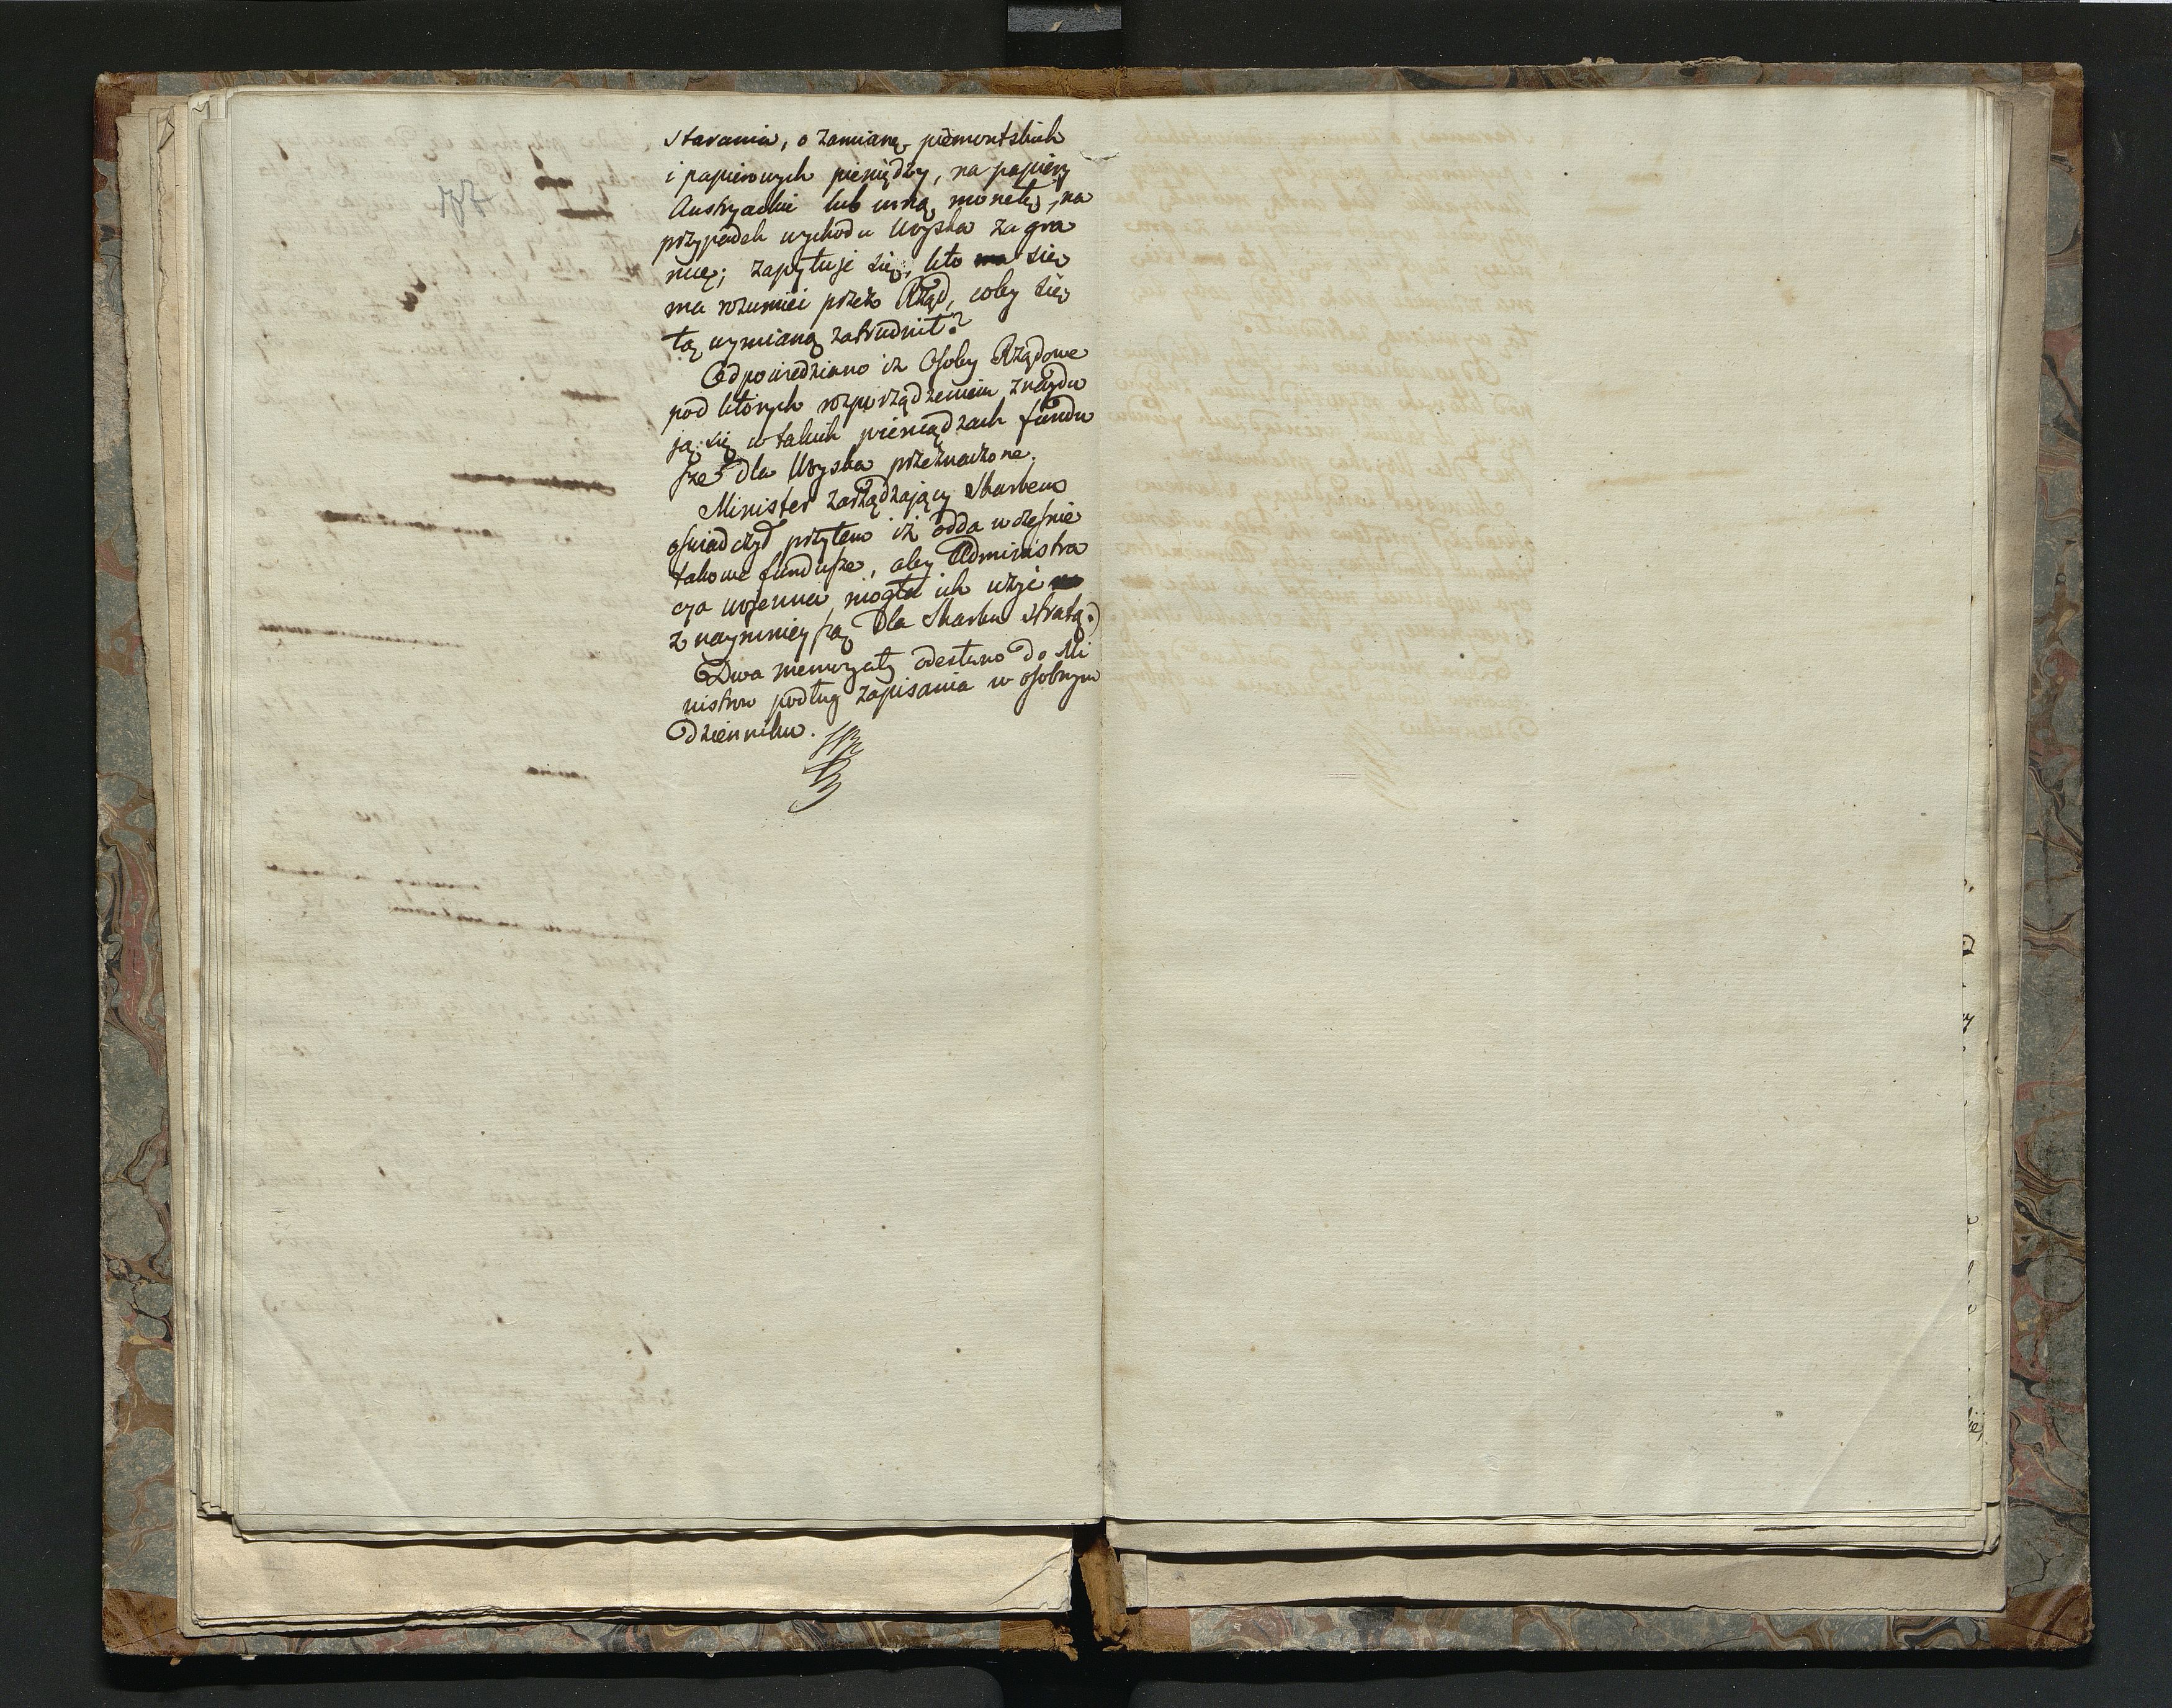 starania, o zamianę piémontskich
i papierowych pieniędzy, na papiery
Austryackie lub inną monetę, na
przypadek wychodu Woyska za gra
nicę; zapytuje się, kto się
ma rozumieć przez Rząd, coby się
tą wymianą zatrudnił?
Odpowiedziano iż Osoby Rządowe
pod których rozporządzeniem znaydu
ją się w takich pieniądzach fundu
sze dla Woyska przeznaczone.
Minister zarządzający Skarbem
oświadczył przytem iż odda wcześnie
takowe fundusze, aby Administra
cya wojenna mogła ich użyć
z naymnieyszą dla Skarbu stratą.)
Dwa memoryały odesłano do Mi
nistrów podług zapisania w osobnym
Dzienniku.